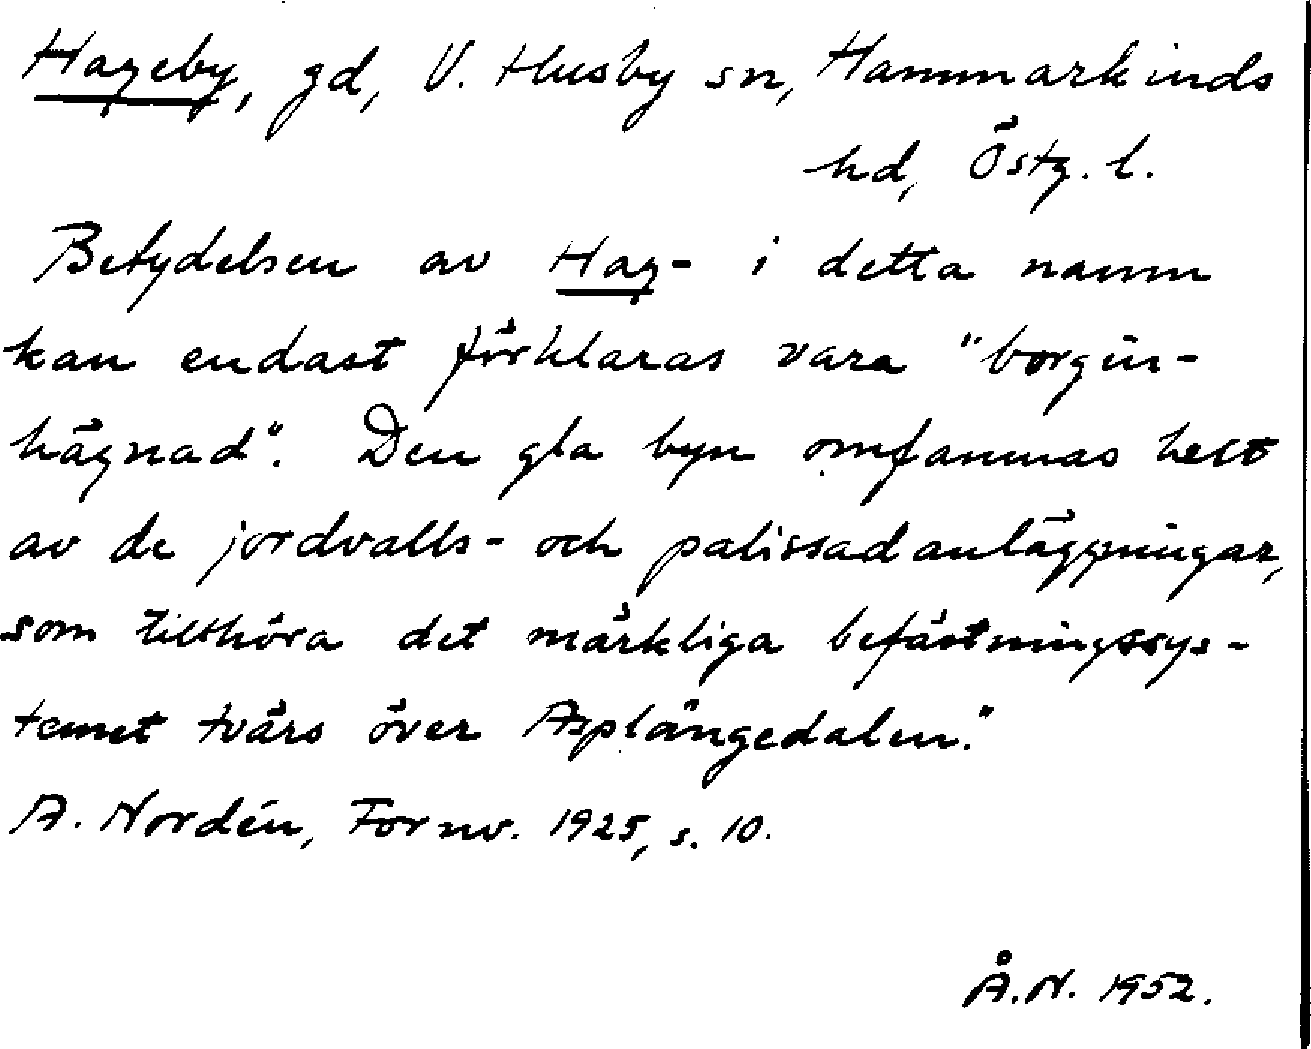 Hageby, gd, V. Husby sn, Hammarkinds
hd, Östg. l.
Betydelsen av Hag- i detta namn
kan endast förklaras vara "borgin-
hägnad". Den gla byn omfamnas helt
av de jordvalls- och palissadanläggningar,
som tillhöra det märkliga befästningssys-
temet tvärs över Asplängedalen."
A. Nordén, Fornv. 1925, s. 10.
Å.N. 1952.